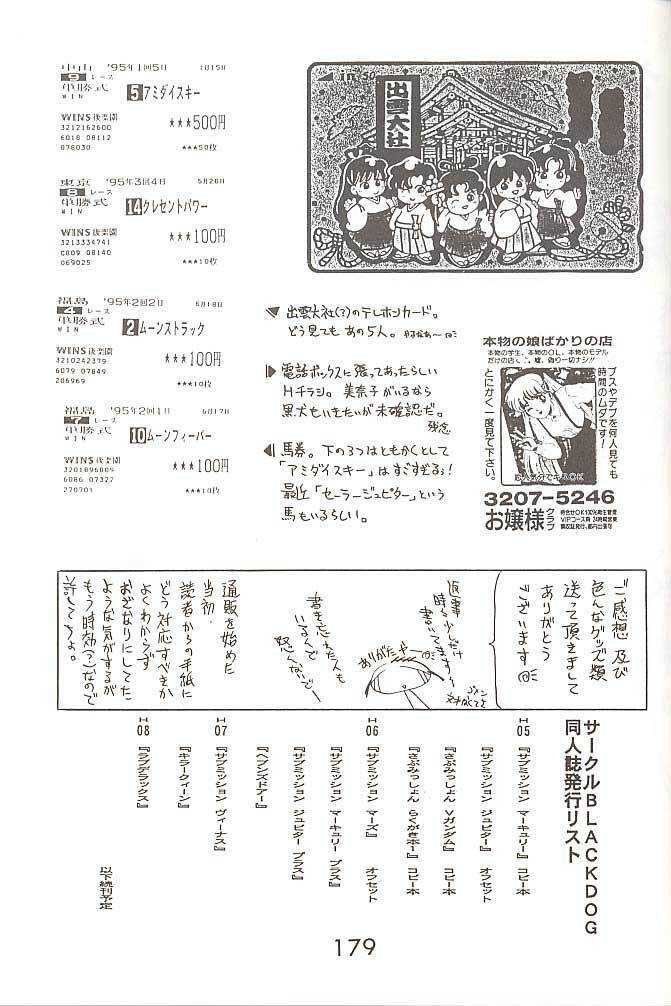 中山 '95年1回5日 1月15日
9 レース
単勝式 5 アミダイスキー
WIN
WINS後楽園 ★★★500円
3212162600
6018 08112
078030 ★★★50枚
東京 '95年3回4日 5月28日
8 レース
単勝式 14 クレセントパワー
WIN
WINS後楽園 ★★★100円
3213334741
C809 08140
069025 ★★★10枚
福島 '95年2回2日 6月18日
4 レース
単勝式 2 ムーンストラック
WIN
WINS後楽園 ★★★100円
3210242379
6079 07849
206969 ★★★10枚
福島 '95年2回1日 6月17日
7 レース
単勝式 10 ムーンフィーバー
WIN
WINS後楽園 ★★★100円
3201896809
6086 07322
270701 ★★★10枚
50
出雲大社
出雲大社(?)のテレホンカード。
どう見てもあの5人。
電話ボックスに張ってあったらしい
Hチラシ。美奈子がいるなら
黒犬もいきたいが未確認だ。
残念
馬券。下の3つはともかくとして
「アミダイスキー」はすごすぎるぅ!
最近「セーラージュピター」という
馬もいるらしい。
本物の娘ばかりの店
本物の学生、本物のOL、本物のモデル
だけの店く、嘘、偽り一切ナシ!!
ブスやデブを何人見ても
時間のムダです!
とにかく一度見て下さい。
3207-5246
お嬢様クラブ
ご感想 及び
色んなグッズ類
送って頂きまして
ありがとう
ございます
返事
時々少しだけ
書いてますヨー
ありがたや〜
書き忘れた人も
いるくで
怒くないで〜
通販を始めた
当初、
読者からの手紙に
どう対応すべきか
よくわからず
おざなりにしてた
ような気がするが
もう時効(?)なので
許してちょ。
サークルBLACKDOG
同人誌発行リスト
H05 『サブミッション マーキュリー』 コピー本
『サブミッション ジュピター』 オフセット
『さぶみっしょん Vガンダム』 コピー本
『さぶみっしょん らくがき本1』 コピー本
H06 『サブミッション マーズ』 オフセット
『サブミッション マーキュリー プラス』
『サブミッション ジュピター プラス』
『ヘブンズドアー』
H07 『サブミッション ヴィーナス』
『キラークィーン』
H08 『ラブデラックス』
以下続刊予定
179